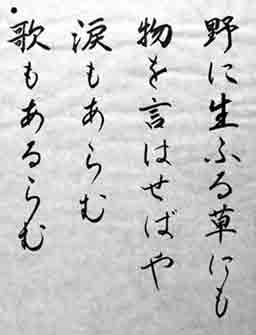 野に生ふる草にも
物を言はせばや
涙もあらむ
歌もあるらむ